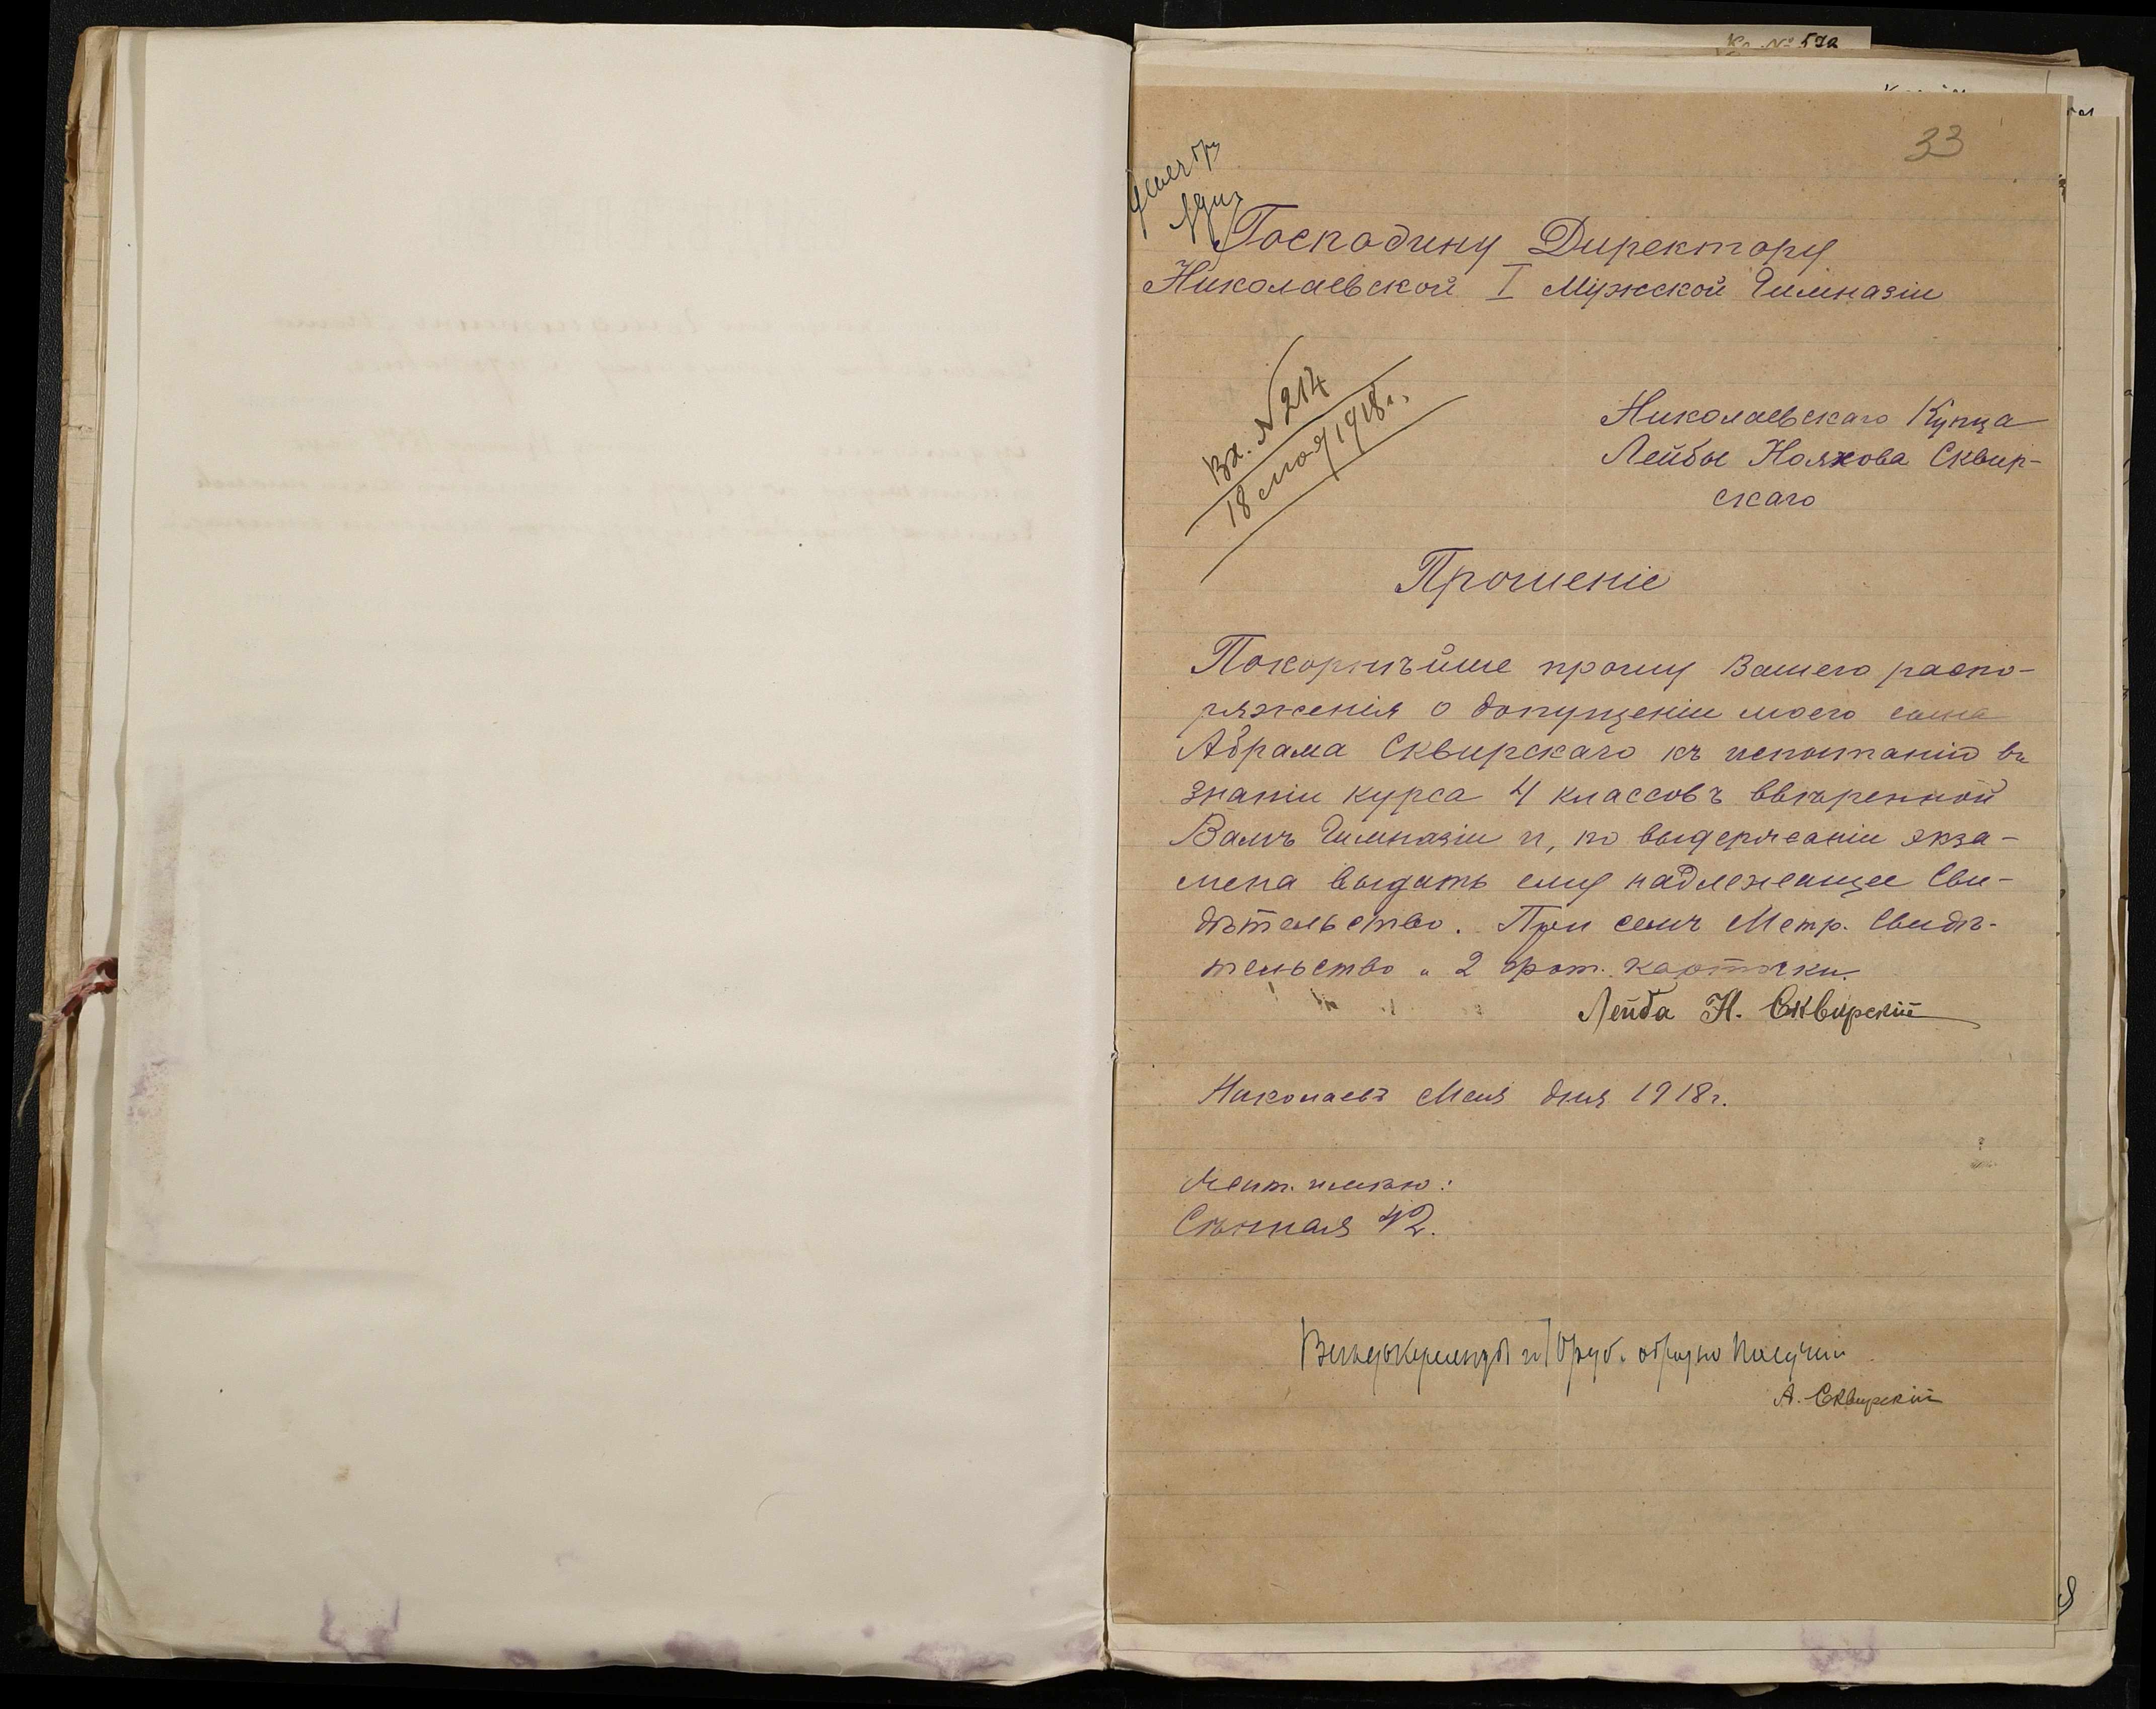 Кс. № 572
33
Господину Директору
Николаевской I Мужской Гимназіи
Вх. № 214
18 мая 1918 г.
Николаевскаго Купца
Лейбы Нояхова Сквир-
скаго
Прошеніе
Покорнѣйше прошу Вашего распо-
ряженія о допущеніи моего сына
Абрама Сквирскаго къ испытанію въ
знаніи курса 4 классовъ ввѣренной
Вамъ Гимназіи и, по выдержаніи экза-
мена выдать ему надлежащее Сви-
дѣтельство. При семъ Метр. Свидѣ-
тельство и 2 фот. карточки.
Лейба Н. Сквирскій
Николаевъ Мая дня 1918 г.
Сѣнная 42.
обратно получил
А. Сквирскій